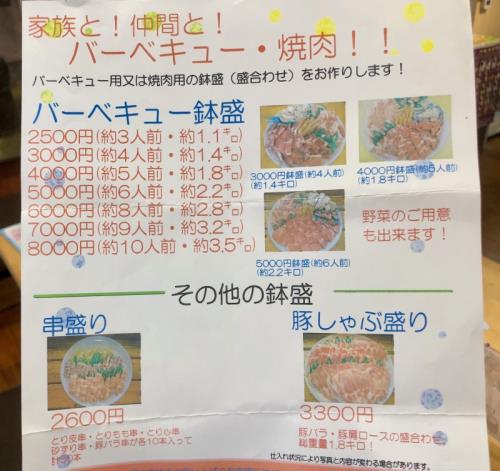 家族と！仲間と！
バーベキュー・焼肉！！
バーベキュー用又は焼肉用の鉢盛（盛合わせ）をお作りします！
バーベキュー鉢盛
2500円(約3人前・約1.1㌔)
3000円(約4人前・約1.4㌔)
4000円(約5人前・約1.8㌔)
5000円(約6人前・約2.2㌔)
6000円(約8人前・約2.8㌔)
7000円(約9人前・約3.2㌔)
8000円(約10人前・約3.5㌔)
3000円鉢盛(約4人前)
(約1.4キロ)
4000円鉢盛(約5人前)
(約1.8キロ)
5000円鉢盛(約6人前)
(約2.2キロ)
野菜のご用意
も出来ます！
その他の鉢盛
串盛り
2600円
とり皮串・とりもも串・とり心串
砂ずり串・豚バラ串が各10本入って
豚しゃぶ盛り
3300円
豚バラ・豚肩ロースの盛合わせ
総重量1.8キロ！
仕入れ状況により写真と内容が変わる場合があります。